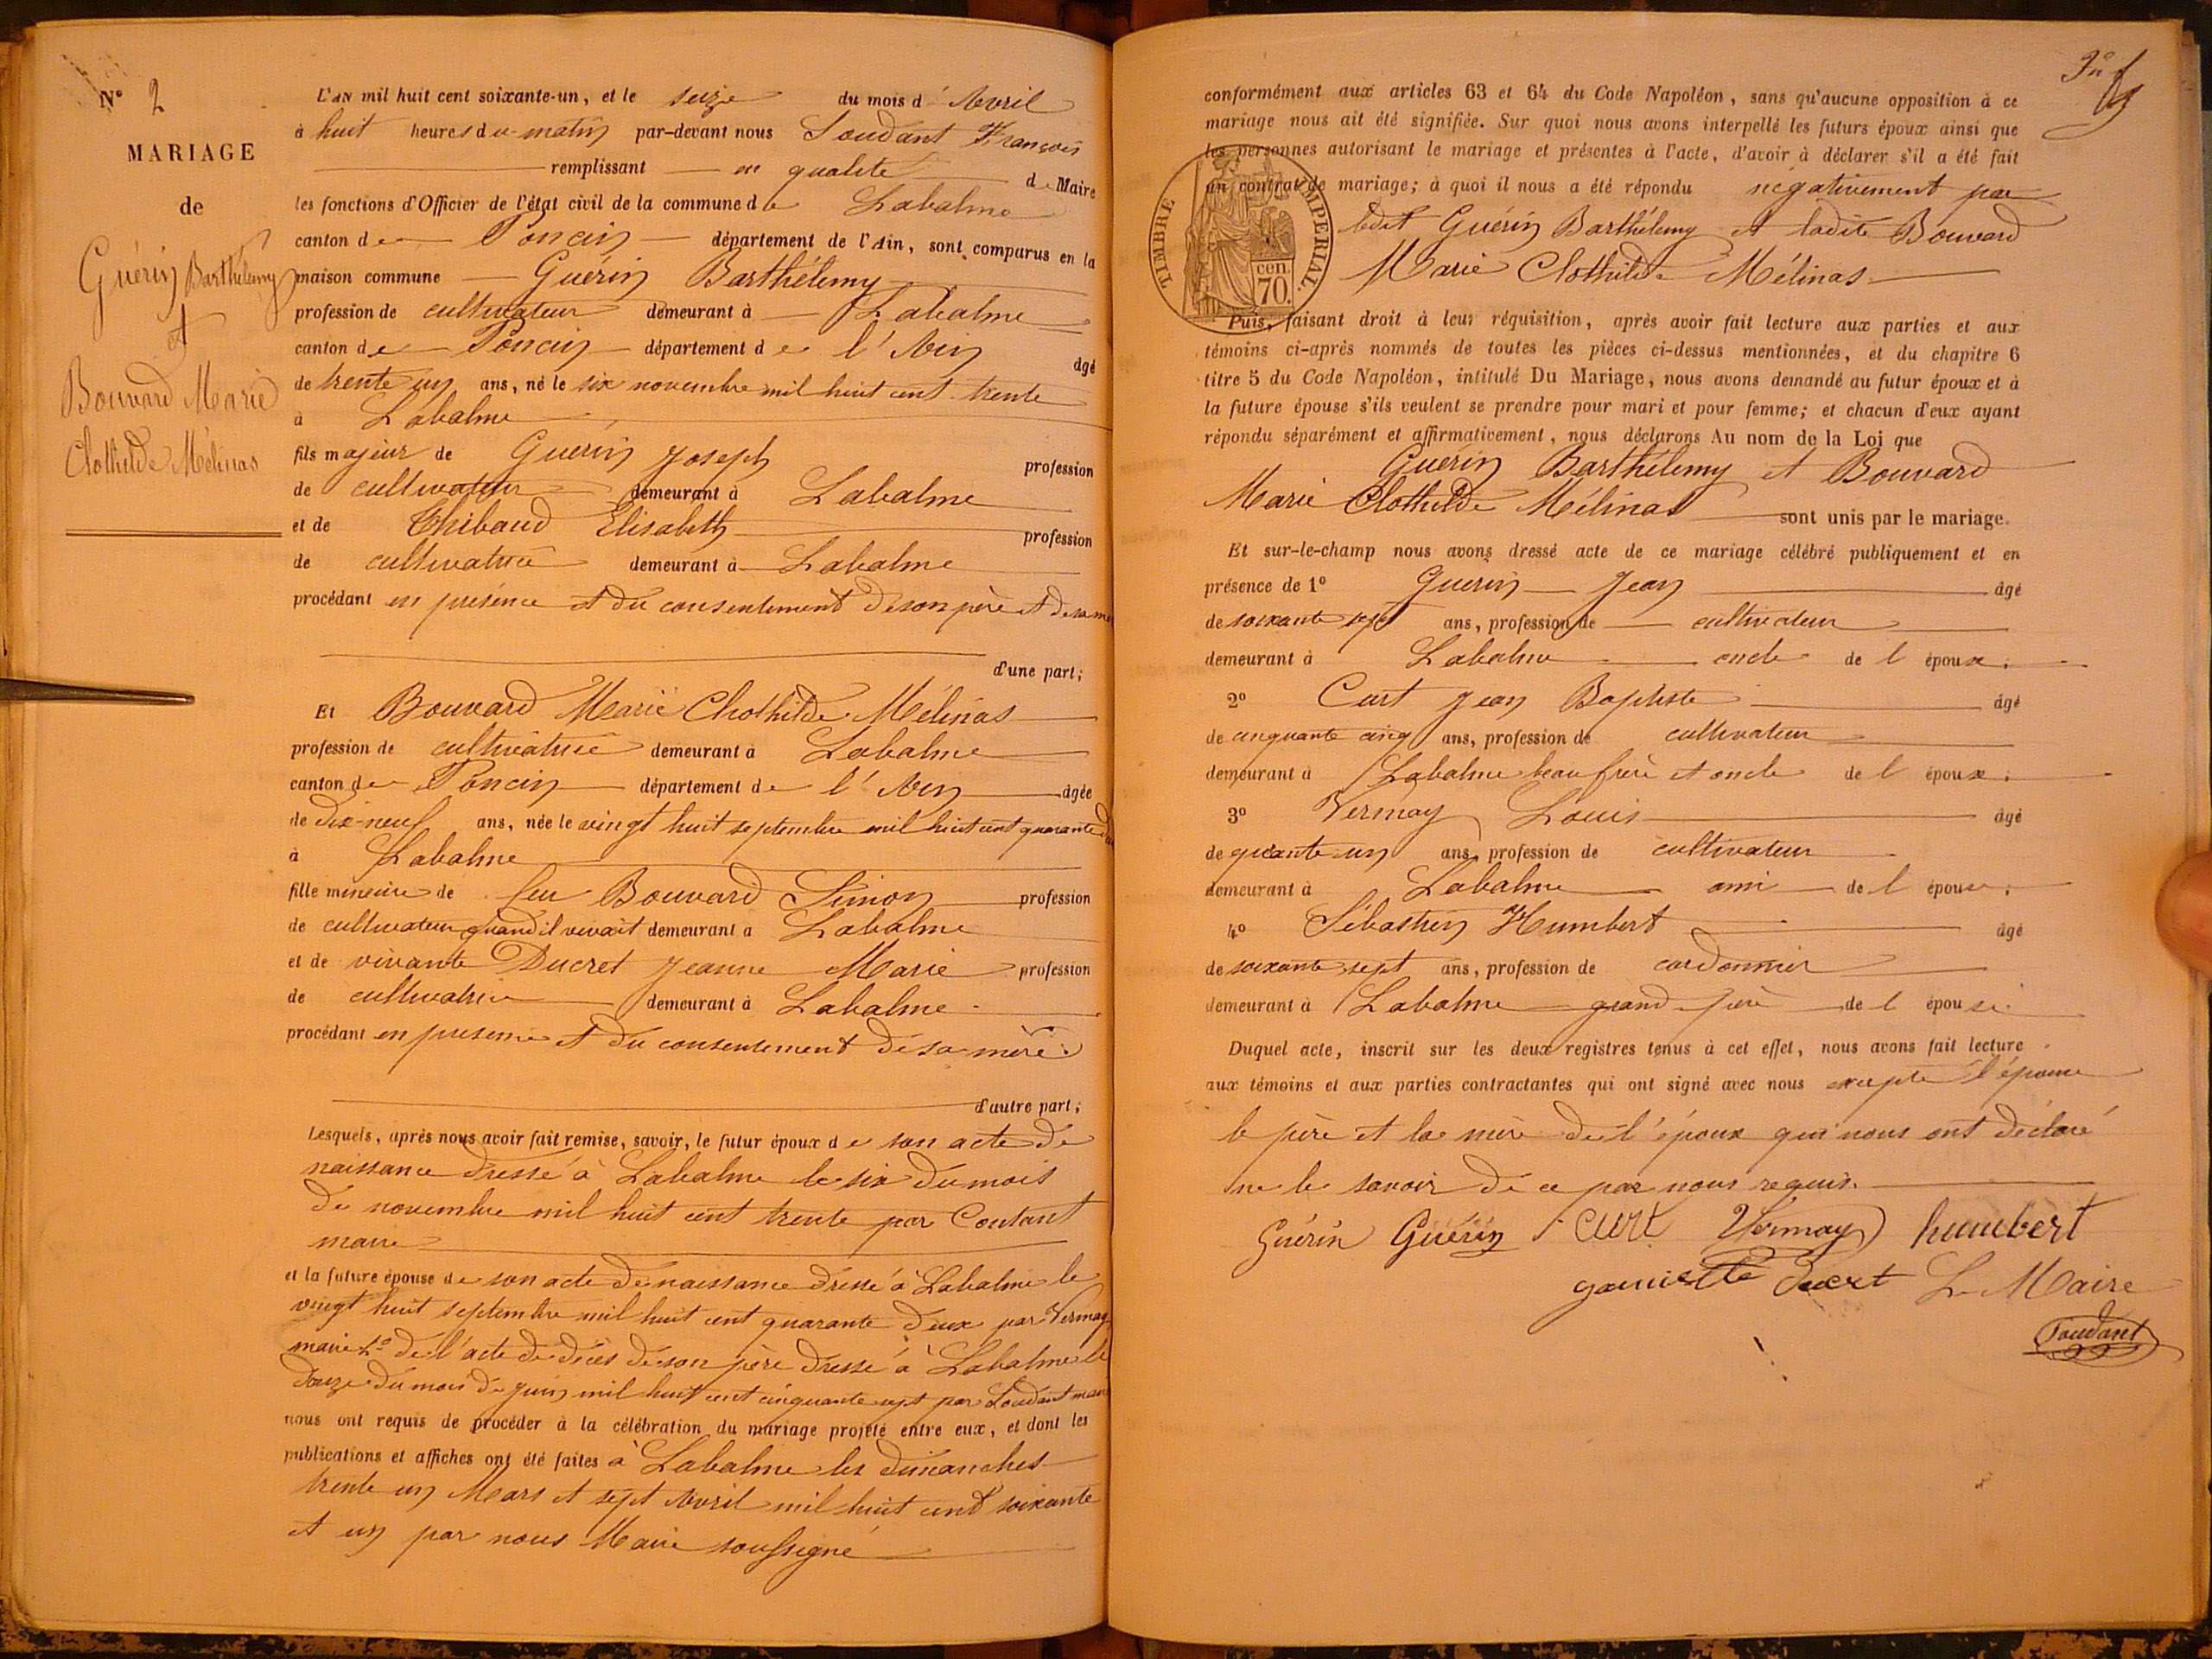 N° 2
MARIAGE
de
Guérin Barthélemy
et
Bouvard Marie
Clothilde Mélinas
L'AN mil huit cent soixante-un, et le seize du mois d' Avril
à huit heures du matin par-devant nous Soudant François
remplissant en qualité de Maire
les fonctions d'Officier de l'état civil de la commune de Labalme
canton de Poncin département de l'Ain, sont comparus en la
maison commune Guérin Barthélemy
profession de cultivateur demeurant à Labalme
canton de Poncin département de l'Ain âgé
de trente un ans, né le six novembre mil huit cent trente
à Labalme
fils majeur de Guérin Joseph profession
de cultivateur demeurant à Labalme
et de Thibaud Elisabeth profession
de cultivatrice demeurant à Labalme
procédant en présence et du consentement de son père et de sa mère
d'une part;
Et Bouvard Marie Clothilde Mélinas
profession de cultivatrice demeurant à Labalme
canton de Poncin département de l'Ain âgée
de dix-neuf ans, née le vingt huit septembre mil huit cent quarante deux
à Labalme
fille mineure de feu Bouvard Simon profession
de cultivateur quand il vivait demeurant à Labalme
et de vivante Ducret Jeanne Marie profession
de cultivatrice demeurant à Labalme
procédant en présence et du consentement de sa mère.
d'autre part;
Lesquels, après nous avoir fait remise, savoir, le futur époux de son acte de
naissance dressé à Labalme le six du mois
de novembre mil huit cent trente par Coutant
maire
et la future épouse de son acte de naissance dressé à Labalme le
vingt huit septembre mil huit cent quarante deux par Vermay
maire 2° de l'acte de décès de son père dressé à Labalme le
douze du mois de juin mil huit cent cinquante sept par Soudant maire
nous ont requis de procéder à la célébration du mariage projeté entre eux, et dont les
publications et affiches ont été faites à Labalme les dimanches
trente un Mars et sept Avril mil huit cent soixante
et un par nous Maire soussigné
conformément aux articles 63 et 64 du Code Napoléon, sans qu'aucune opposition à ce
mariage nous ait été signifiée. Sur quoi nous avons interpellé les futurs époux ainsi que
les personnes autorisant le mariage et présentes à l'acte, d'avoir à déclarer s'il a été fait
un contrat de mariage; à quoi il nous a été répondu négativement par
ledit Guérin Barthélemy et ladite Bouvard
Marie Clothilde Mélinas
TIMBRE IMPERIAL.
cen.
70.
Puis, faisant droit à leur réquisition, après avoir fait lecture aux parties et aux
témoins ci-après nommés de toutes les pièces ci-dessus mentionnées, et du chapitre 6
titre 5 du Code Napoléon, intitulé Du Mariage, nous avons demandé au futur époux et à
la future épouse s'ils veulent se prendre pour mari et pour femme; et chacun d'eux ayant
répondu séparément et affirmativement, nous déclarons Au nom de la Loi que
Guérin Barthélemy et Bouvard
Marie Clothilde Mélinas sont unis par le mariage.
Et sur-le-champ nous avons dressé acte de ce mariage célébré publiquement et en
présence de 1° Guérin Jean âgé
de soixante sept ans, profession de cultivateur
demeurant à Labalme oncle de l époux;
2° Curt Jean Baptiste âgé
de cinquante cinq ans, profession de cultivateur
demeurant à Labalme beau frère et oncle de l époux;
3° Vermay Louis âgé
de quarante un ans, profession de cultivateur
demeurant à Labalme ami de l épouse;
4° Sébastien Humbert âgé
de soixante sept ans, profession de cordonnier
demeurant à Labalme grand père de l épouse.
Duquel acte, inscrit sur les deux registres tenus à cet effet, nous avons fait lecture
aux témoins et aux parties contractantes qui ont signé avec nous excepté l'épouse
le père et la mère de l'époux qui nous ont déclaré
ne le savoir de ce par nous requis.
Guérin Guérin Curt Vermay humbert
Ducret Le Maire
Soudant